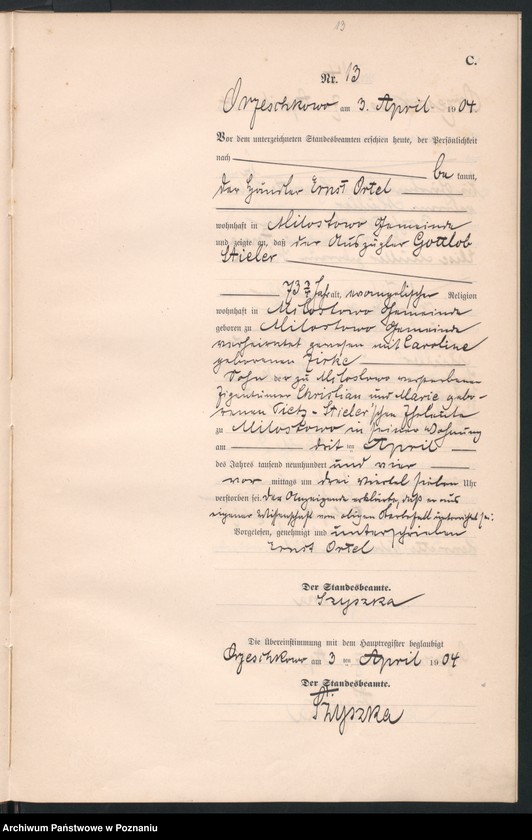 13
C.
Nr. 13
Orzeschkowo am 3. April 1904
Vor dem unterzeichneten Standesbeamten erschien heute, der Persönlichkeit
nach be kannt,
der Händler Ernst Ortel
wohnhaft in Milostowo Gemeinde
und zeigte an, daß der Auszügler Gottlob
Stieler
73 Jahr alt, evangelischer Religion
wohnhaft in Milostowo Gemeinde
geboren zu Milostowo Gemeinde
verheirathet gewesen mit Caroline
geborenen Zirke
Sohn der zu Milostowo verstorbenen
Eigentümer Christian und Marie gebo-
renen Tietz-Stieler'schen Eheleute
zu Milostowo in seiner Wohnung
am dritten April
des Jahres tausend neunhundert und vier
vor mittags um drei viertel sieben Uhr
verstorben sei. Der Anzeigende erklärte, daß er aus
eigener Wissenschaft vom obigen Sterbefall unterrichtet sei.
Vorgelesen, genehmigt und unterschrieben
Ernst Ortel
Der Standesbeamte.
Szyszka
Die Übereinstimmung mit dem Hauptregister beglaubigt
Orzeschkowo am 3 ten April 1904
Der Standesbeamte.
Szyszka
Archiwum Państwowe w Poznaniu